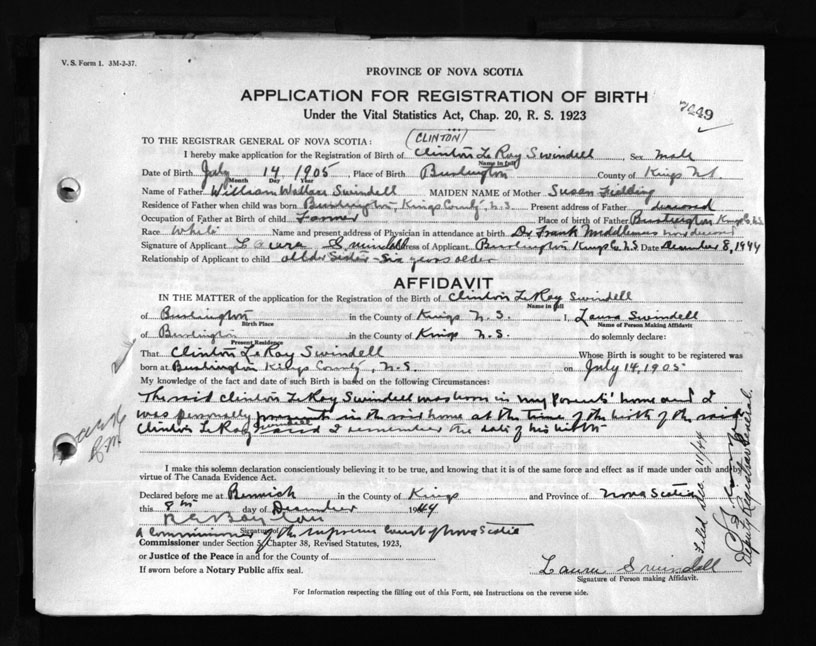 V. S. Form 1. 3M-2-37.
PROVINCE OF NOVA SCOTIA
APPLICATION FOR REGISTRATION OF BIRTH
Under the Vital Statistics Act, Chap. 20, R. S. 1923
49
TO THE REGISTRAR GENERAL OF NOVA SCOTIA:
(CLINTON)
I hereby make application for the Registration of Birth of Clinton LeRoy Swindell, Sex Male
Name in full
Date of Birth July 14 1905 Place of Birth Burlington County of Kings N.S.
Month Day Year
Name of Father William Wallace Swindell MAIDEN NAME of Mother Susan Fielding
Residence of Father when child was born Burlington, Kings County, N.S. Present address of Father deceased
Occupation of Father at Birth of child Farmer Place of birth of Father Burlington Kings Co. N.S.
Race White Name and present address of Physician in attendance at birth Dr Frank Middlemas now deceased
Signature of Applicant Laura Swindell Address of Applicant Burlington Kings Co. N.S. Date December 8, 1944
Relationship of Applicant to child older Sister - Six years older
AFFIDAVIT
IN THE MATTER of the application for the Registration of the Birth of Clinton LeRoy Swindell
Name in full
of Burlington in the County of Kings N.S. I, Laura Swindell
Birth Place Name of Person Making Affidavit
of Burlington in the County of Kings N.S. do solemnly declare:
Present Residence
That Clinton LeRoy Swindell Whose Birth is sought to be registered was
born at Burlington Kings County, N.S. on July 14, 1905
My knowledge of the fact and date of such Birth is based on the following Circumstances:
The said Clinton LeRoy Swindell was born in my parents' home and I
was personally present in the said home at the time of the birth of the said
Clinton LeRoy Swindell and I remember the date of his birth
I make this solemn declaration conscientiously believing it to be true, and knowing that it is of the same force and effect as if made under oath and by
virtue of The Canada Evidence Act.
Declared before me at Berwick in the County of Kings and Province of Nova Scotia
this 8th day of December 1944
Signature of
A Commissioner of the Supreme Court of Nova Scotia
Commissioner under Section 5, Chapter 38, Revised Statutes, 1923,
or Justice of the Peace in and for the County of
If sworn before a Notary Public affix seal.
Laura Swindell
Signature of Person making Affidavit.
For Information respecting the filling out of this Form, see Instructions on the reverse side.
Filed Dec. 11/44
Deputy Registrar General.